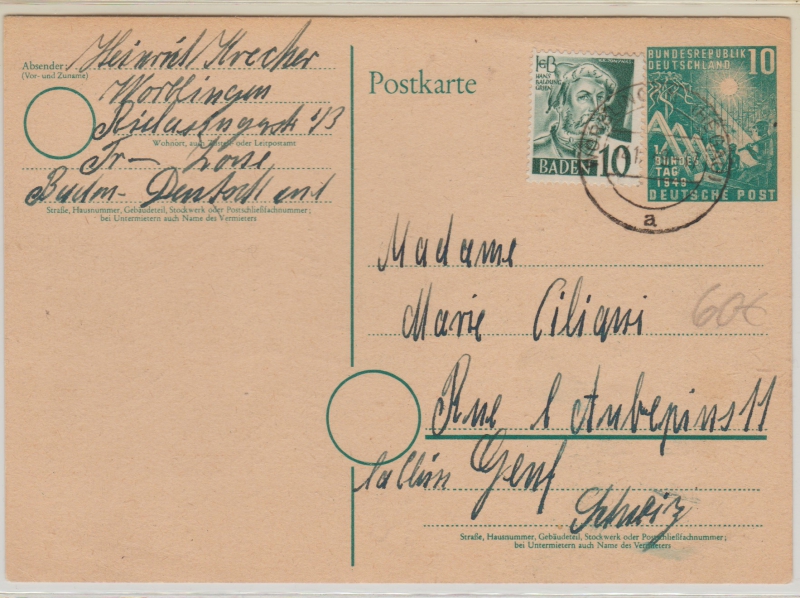 Absender:
(Vor- und Zuname)
Heinrich Krecker
Worblingen
Wohnort, auch Zustell- oder Leitpostamt
Baden-
Straße, Hausnummer, Gebäudeteil, Stockwerk oder Postschließfachnummer;
bei Untermietern auch Name des Vermieters
Postkarte
HANS
BALDUNG
GRIEN
BADEN 10
BUNDESREPUBLIK
DEUTSCHLAND 10
1.
BUNDES
TAG
1949
DEUTSCHE POST
a
Madame
Marie Ciliani
Rue l Aubepins 11
Genf
Schweiz
60€
Straße, Hausnummer, Gebäudeteil, Stockwerk oder Postschließfachnummer;
bei Untermietern auch Name des Vermieters